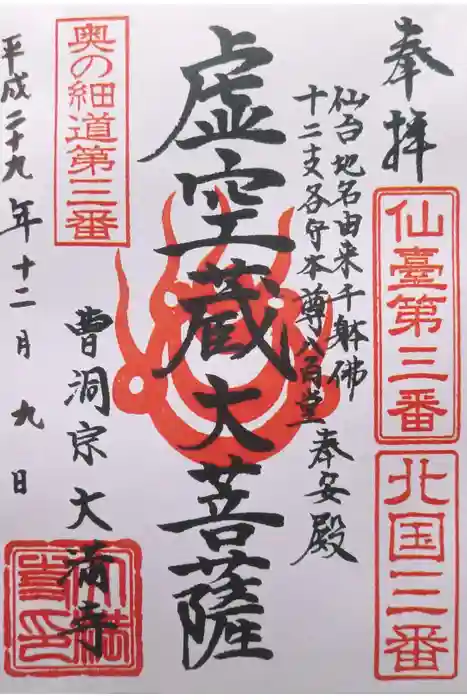 奉拝
仙臺第三番
北国三番
仙台地名由来千躰佛
十二支各守本尊八角堂奉安殿
虚空蔵大菩薩
奥の細道第三番
曹洞宗大満寺
平成二十九年十二月九日